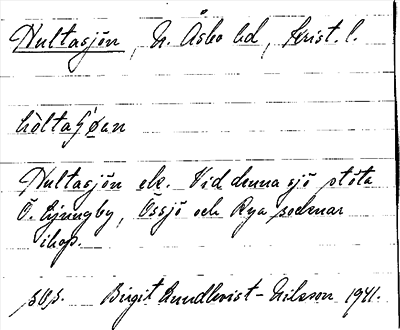 Hultasjön, N. Åsbo hd, Krist. l.
hòltaʃøan
Hultasjön ek. Vid denna sjö stöta
Ö. Ljungby, Össjö och Rya socknar
ihop.
sOs. Birgit Lundkvist-Nilsson 1941.